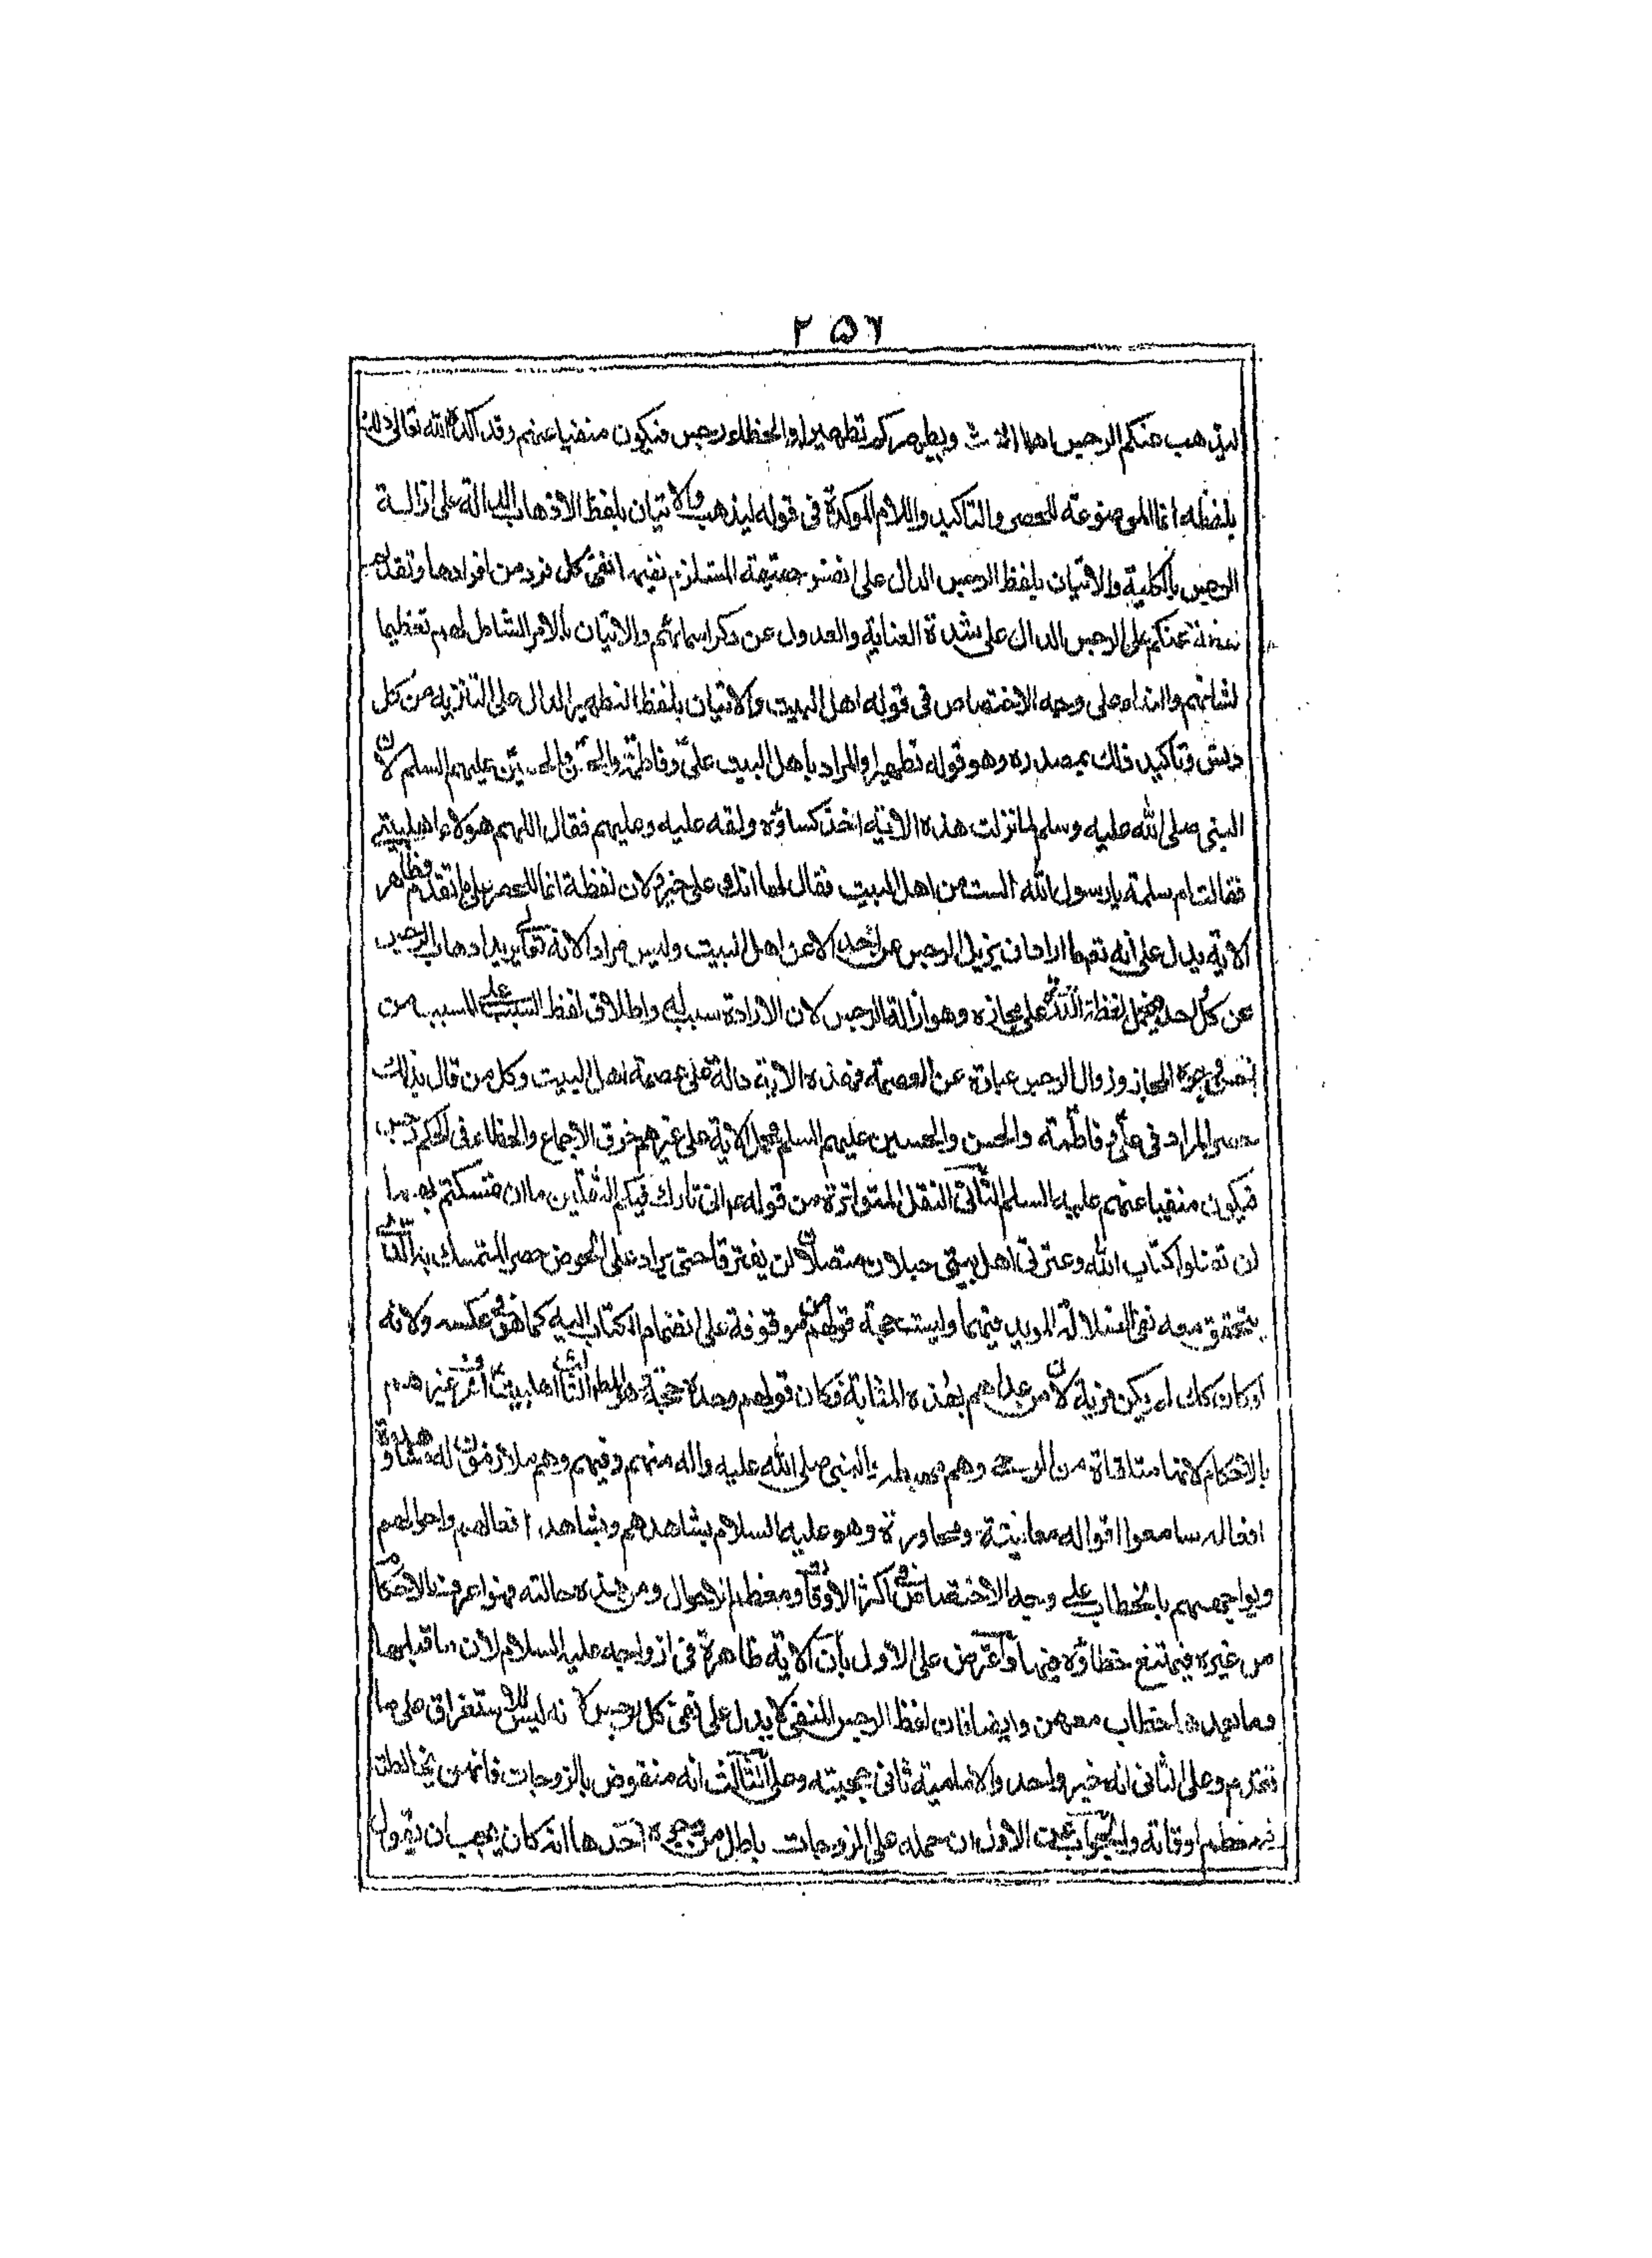 ٢٥٦
ليذهب عنكم الرجس اهل البيت ويطهركم تطهيرا والخطاء رجس فيكون منفيا عنهم وقد اكد الله تعالى ذلك
بلفظه انما الموضوعة للحصر والتاكيد واللام الموكدة فى قوله ليذهب والاتيان بلفظ الاذهاب الدالة على ازالة
الرجس بالكلية والاتيان بلفظ الرجس الدال على نفس حقيقته المستلزم نفيها نفى كل فرد من افرادها وتقديم
لفظة عنكم على الرجس الدال على شدة العناية والعدول عن ذكر اسمائهم والاتيان بالامر الشامل لهم تعظيما
لشانهم والنداء على وجه الاختصاص فى قوله اهل البيت والاتيان بلفظ التطهير الدال على التنزيه من كل
دنس وتاكيد ذلك بمصدره وهو قوله تطهيرا والمراد باهل البيت على وفاطمة والحسن والحسين عليهم السلم لان
النبى صلى الله عليه وسلم لما نزلت هذه الاية اخذ كساؤه ولفه عليه وعليهم فقال اللهم هولاء اهل بيتى
فقالت ام سلمة يا رسول الله الست من اهل البيت فقال لها انك على خير ولان لفظة انما للحصر على ما تقدم فظاهر
الاية يدل على انه تعالى ما اراد ان يزيل الرجس عن احد الا عن اهل البيت وليس مرادا لانه تعالى يريد اذهاب الرجس
عن كل احد فيحمل لفظة على مجازه وهو ازالة الرجس لان الارادة سبب له واطلاق لفظ السبب على المسبب من
وجوه المجاز وزوال الرجس عبارة عن العصمة فهذه الاية دالة على عصمة اهل البيت وكل من قال بذلك
حصر المراد فى على وفاطمة والحسن والحسين عليهم السلم فحمل الاية على غيرهم خرق الاجماع والخطاء فى الحكم رجس
فيكون منفيا عنهم عليه السلم الثانى النقل المتواترة من قوله ع انى تارك فيكم الثقلين ما ان تمسكتم بهما
لن تضلوا كتاب الله وعترتى اهل بيتى حبلان متصلان لن يفترقا حتى يردا على الحوض حصر التمسك
يتحقق معه نفى الضلالة الموبد فيهما وليست حجة قولهم موقوفة على انضمام الكتاب اليه كما هو فى عكسه ولانه
لو كان كك لم يكن مزية لان من عداهم بهذه المثابة فكان قولهم وحده حجة وهو المط الثالث اهل بيته اعرف من غيرهم
بالاحكام لانها متلقاة من الوحى وهم النبى صلى الله عليه واله منهم وفيهم وهم ملازمون له مشاهدون
افعاله سامعوا اقواله معاينة ومحاورة وهو عليه السلام يشاهدهم ويشاهد افعالهم واحوالهم
ويواجههم بالخطاب على وجه الاختصاص فى اكثر الاوقات ومعظم الاحوال ومن هذه حالته فهو اعرف بالاحكام
من غيره فيمتنع خطاؤه فيها واعترض على الاول بان الاية ظاهرة فى ازواجه عليه السلام لان ما قبلها
وما بعدها خطاب معهن وايضا فان لفظ الرجس المنفى لا يدل على نفى كل رجس لانه ليس للاستغراق على ما
تقدم وعلى الثانى انه خبر واحد والامامية حجيته وعلى الثالث انه منقوض بالزوجات فانهن يخالطنه
فى معظم اوقاته والجواب عن الاول ان حمله على الزوجات باطل من وجوه احدها انه كان يجب ان يقول